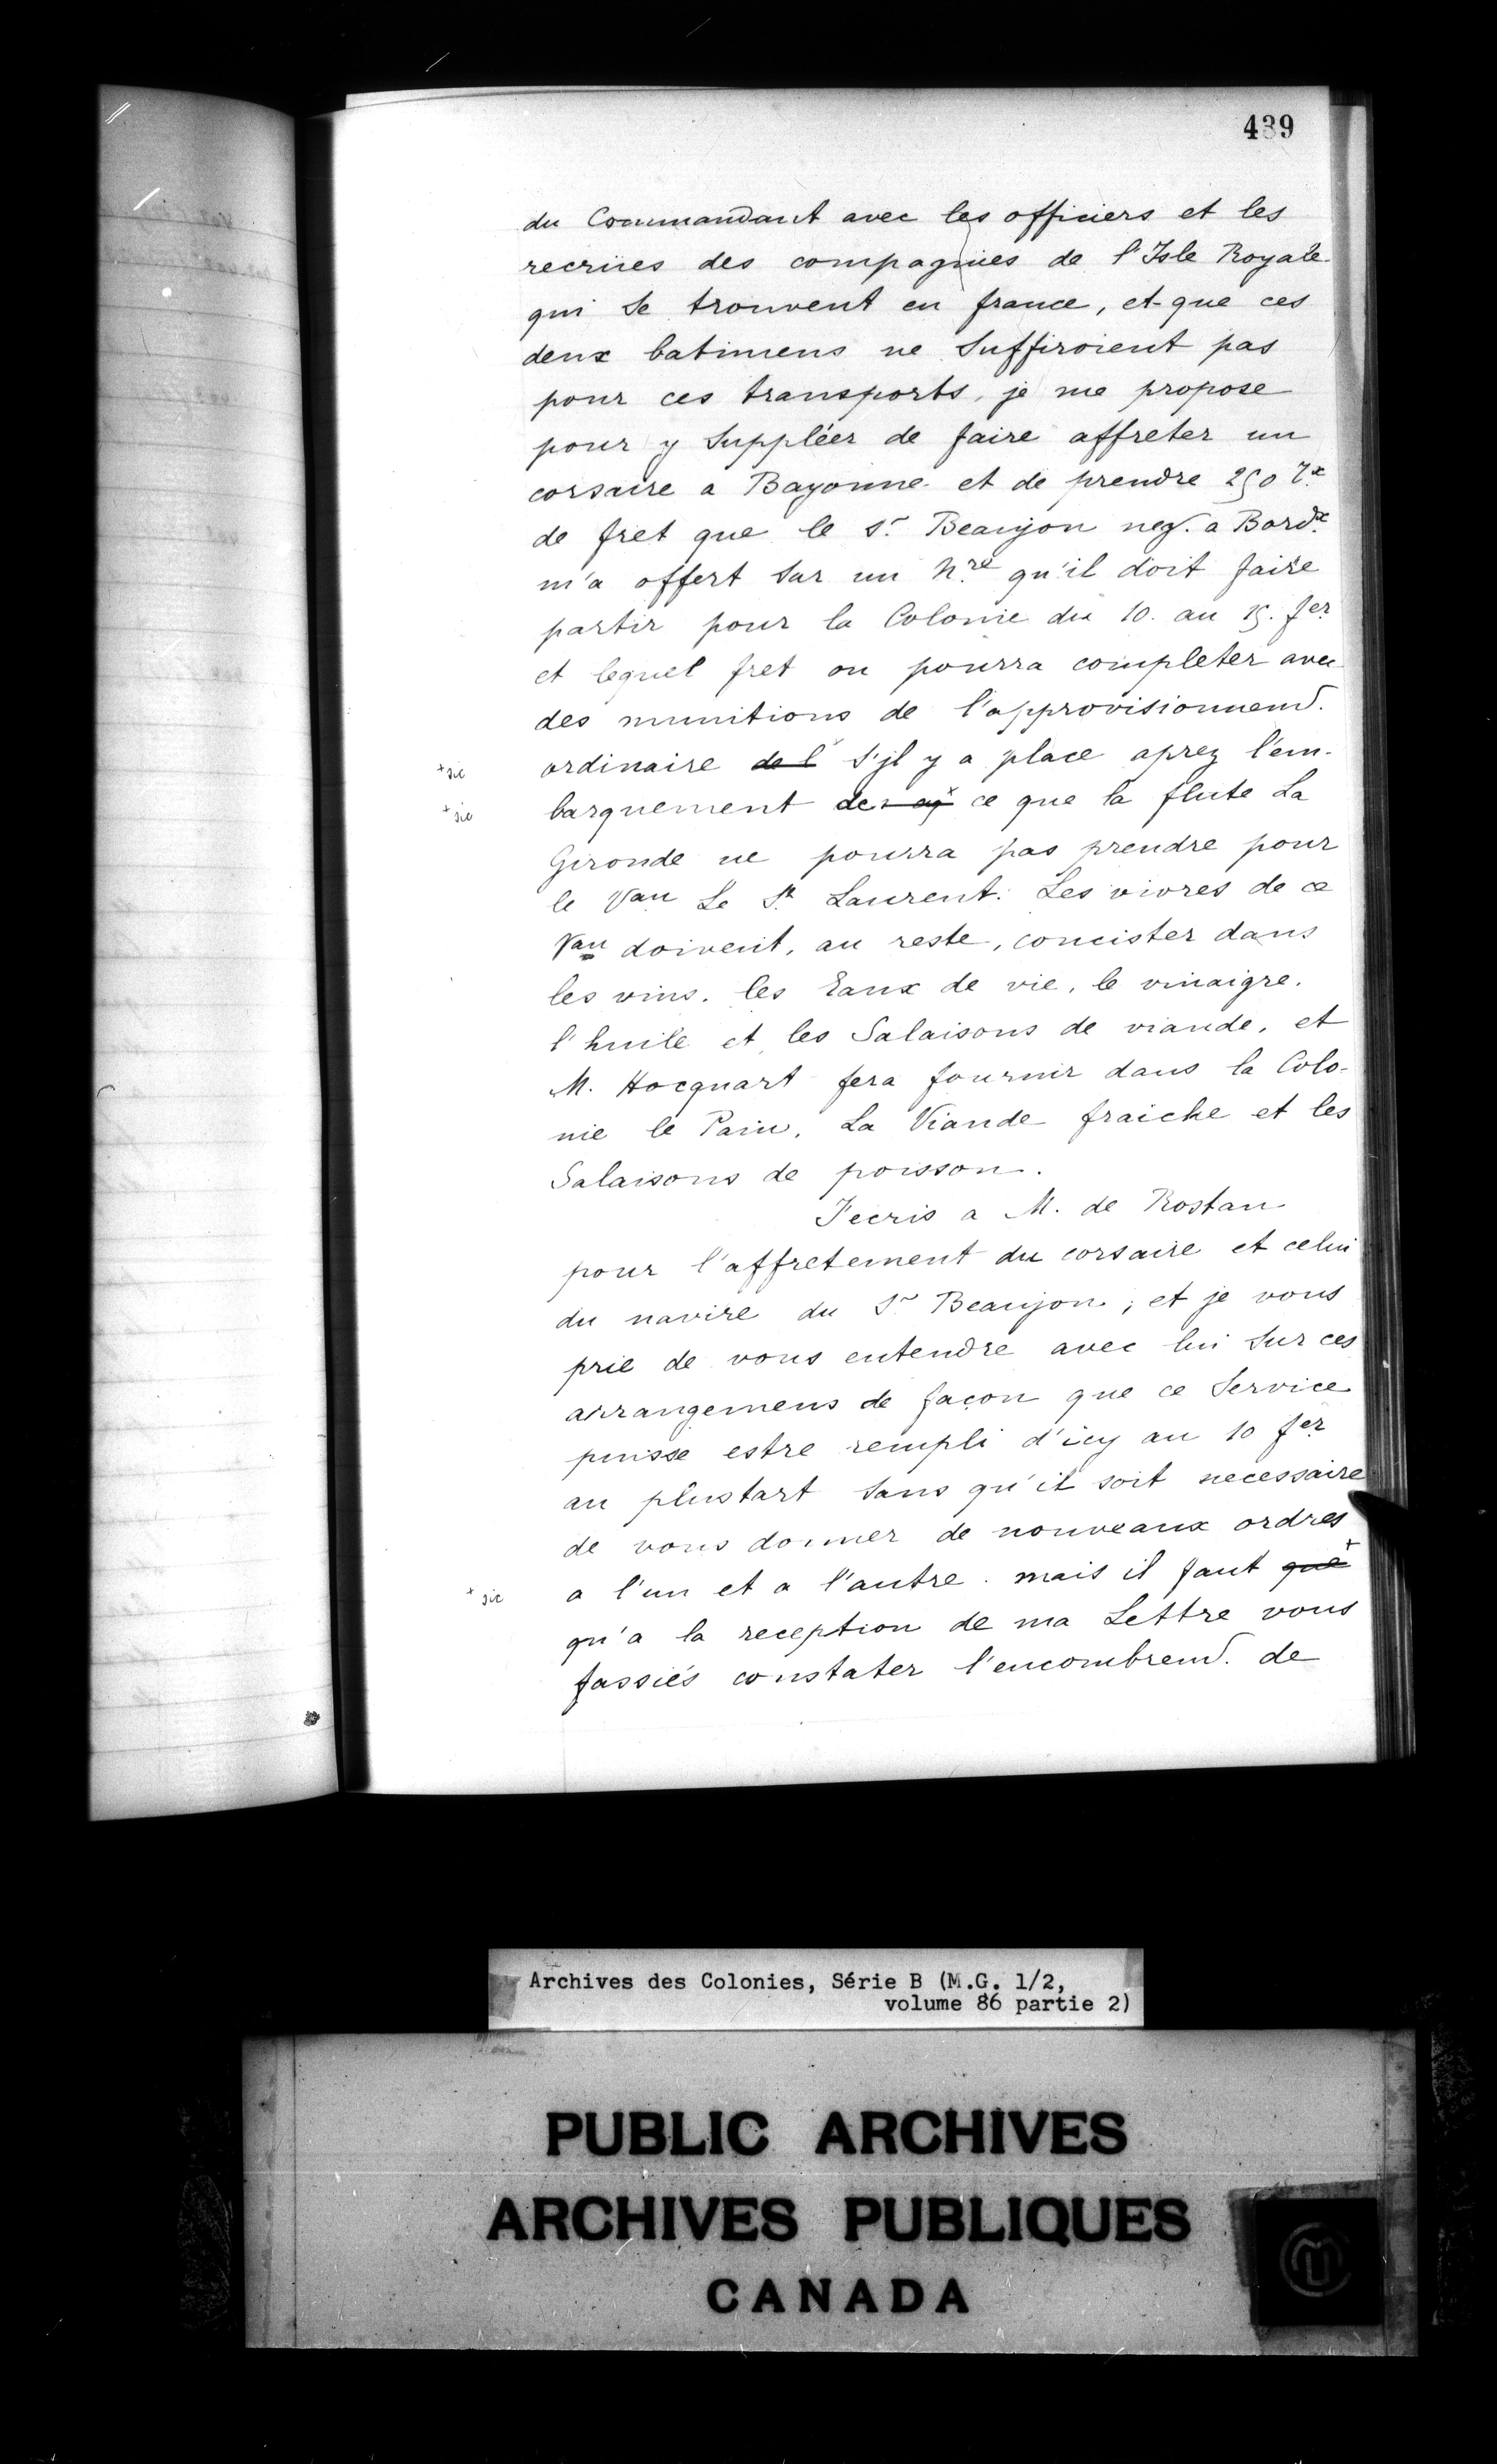 439
du Commandant avec les officiers et les
recrües des compagnies de l'Isle Royale
qui Se trouvent en france, et que ces
deux batimens ne Suffiroient pas
pour ces transports, je me propose
pour y Suppléer de faire affreter un
corsaire a Bayonne et de prendre 250 Tx
de fret que le Sr. Beaujon neg. a Bordx
m'a offert Sur un Nre qu'il doit faire
partir pour la Colonie du 10. au 15. fer
et lequel fret on pourra completer avec
des munitions de l'approvisionnemt.
+ sic ordinaire de l' S'jl y a place aprez l'em-
+ sic barquement de ce que la flute La
Gironde ne pourra pas prendre pour
le Vau Le St. Laurent. Les vivres de ce
Vau doivent, au reste, concister dans
les vins, les Eaux de vie, le vinaigre,
l'huile et les Salaisons de viande, et
M. Hocquart fera fournir dans la Colo-
nie le Pain, La Viande fraiche et les
Salaisons de poisson.
J'ecris a M. de Rostan
pour l'affretement du corsaire et celui
du navire du Sr Beaujon, et je vous
prie de vous entendre avec lui Sur ces
arrangemens de façon que ce Service
puisse estre rempli d'icy au 10 fer
au plustart Sans qu'il soit necessaire
de vous donner de nouveaux ordres
+ sic a l'un et a l'autre. mais il faut que +
qu'a la reception de ma Lettre vous
fassiés constater l'encombremt. de
Archives des Colonies, Série B (M.G. 1/2,
volume 86 partie 2)
PUBLIC ARCHIVES
ARCHIVES PUBLIQUES
CANADA